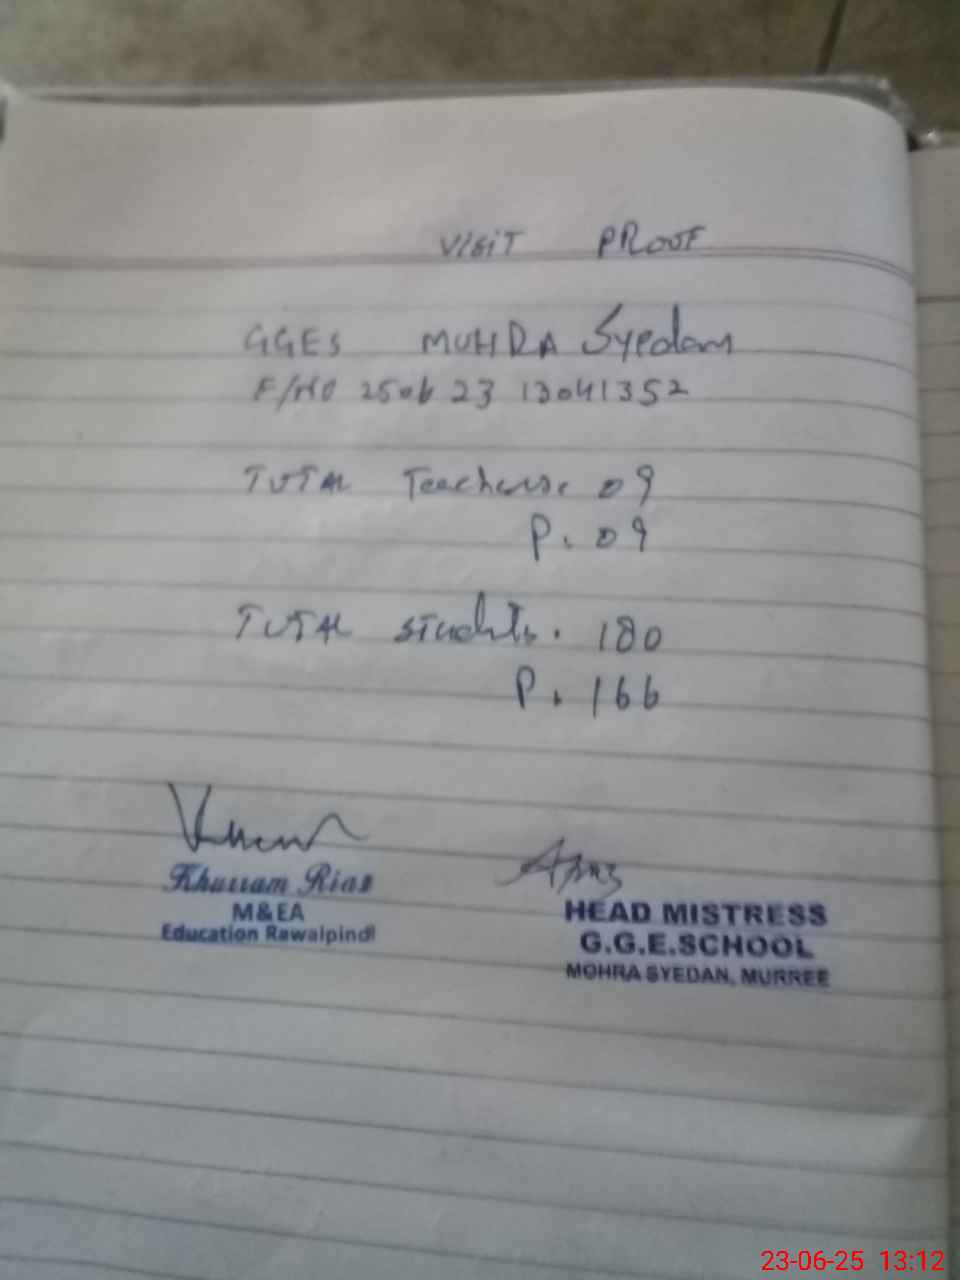 VISIT PROOF
GGES MUHRA Syedan
F/NO 250623 13041352
TOTAL Teachers. 09
P. 09
TOTAL students. 180
P. 166
Khurram Riaz
M&EA
Education Rawalpindi
HEAD MISTRESS
G.G.E.SCHOOL
MOHRA SYEDAN, MURREE
23-06-25 13:12